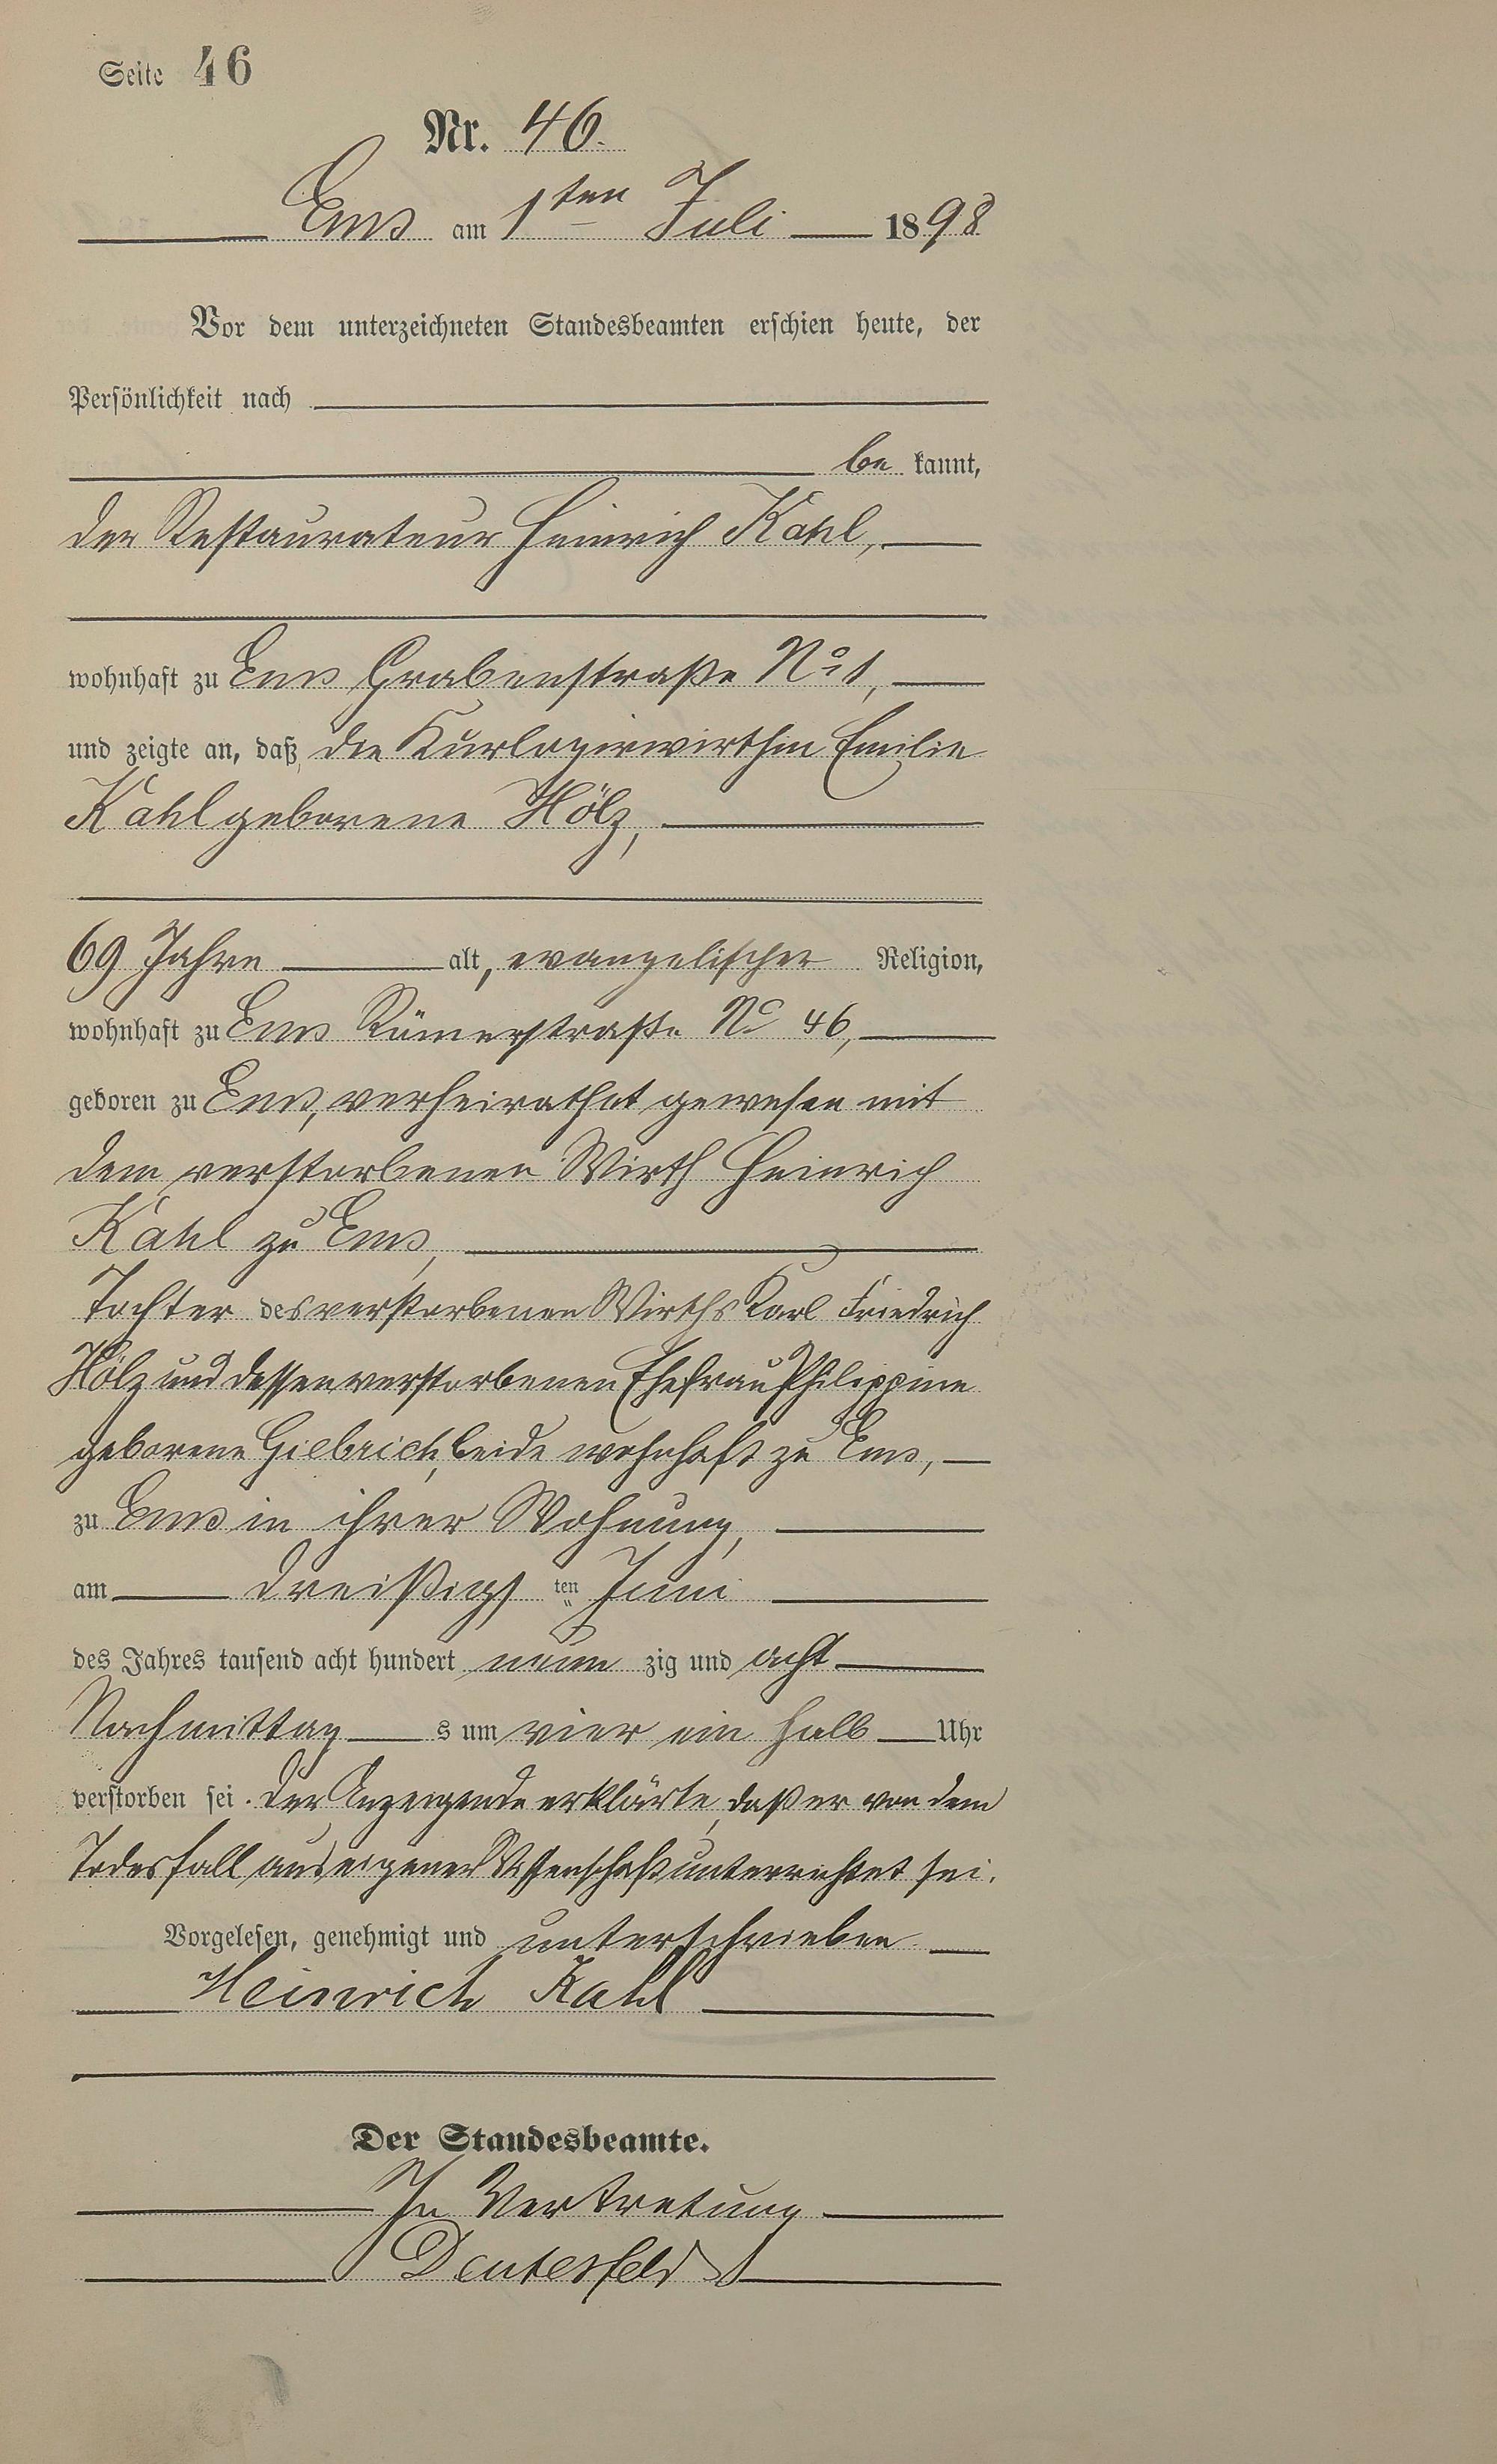 Seite 46
Nr. 46.
Ems am 1ten Juli 1898
Vor dem unterzeichneten Standesbeamten erschien heute, der
Persönlichkeit nach
be kannt,
der Restaurateur Heinrich Kahl,
wohnhaft zu Ems Grabenstraße No 1,
und zeigte an, daß die Kurlogirwirthin Emilie
Kahl geborene Hölz,
69 Jahre alt, evangelischer Religion,
wohnhaft zu Ems Römerstraße No 46,
geboren zu Ems, verheirathet gewesen mit
dem verstorbenen Wirth Heinrich
Kahl zu Ems,
Tochter des verstorbenen Wirths Karl Friedrich
Hölz und dessen verstorbenen Ehefrau Philippine
geborene Gielbrich, beide wohnhaft zu Ems,
zu Ems in ihrer Wohnung,
am dreißigs ten Juni
des Jahres tausend acht hundert neun zig und acht
Nachmittag s um vier ein halb Uhr
verstorben sei. Der Anzeigende erklärte, daß er von dem
Todesfall aus eigener Wissenschaft unterrichtet sei.
Vorgelesen, genehmigt und unterschrieben
Heinrich Kahl
Der Standesbeamte.
In Vertretung
Deutesfeld